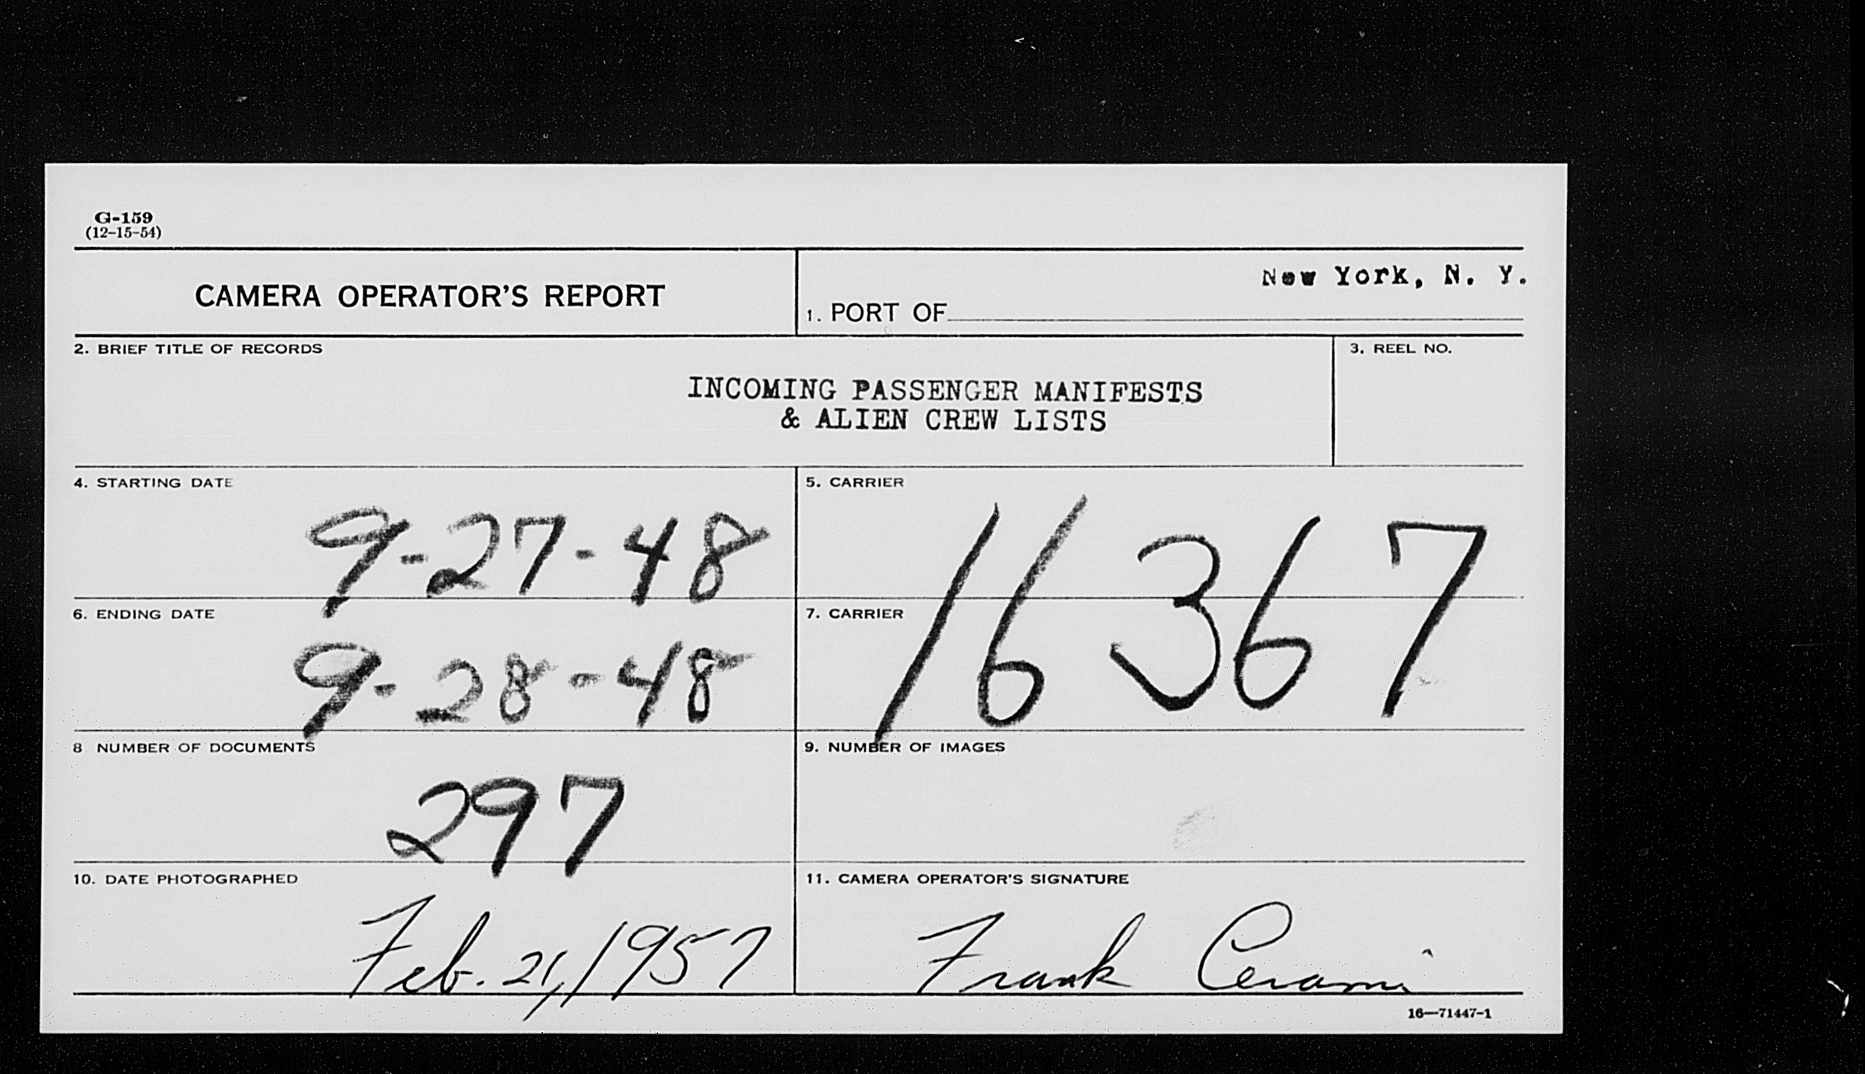 G-159
(12-15-54)
CAMERA OPERATOR'S REPORT
New York, N. Y.
1. PORT OF
2. BRIEF TITLE OF RECORDS
3. REEL NO.
INCOMING PASSENGER MANIFESTS
& ALIEN CREW LISTS
4. STARTING DATE
9-27-48
5. CARRIER
16367
6. ENDING DATE
9-28-48
7. CARRIER
8 NUMBER OF DOCUMENTS
297
9. NUMBER OF IMAGES
10. DATE PHOTOGRAPHED
Feb. 21, 1957
11. CAMERA OPERATOR'S SIGNATURE
Frank Cerami
16—71447-1